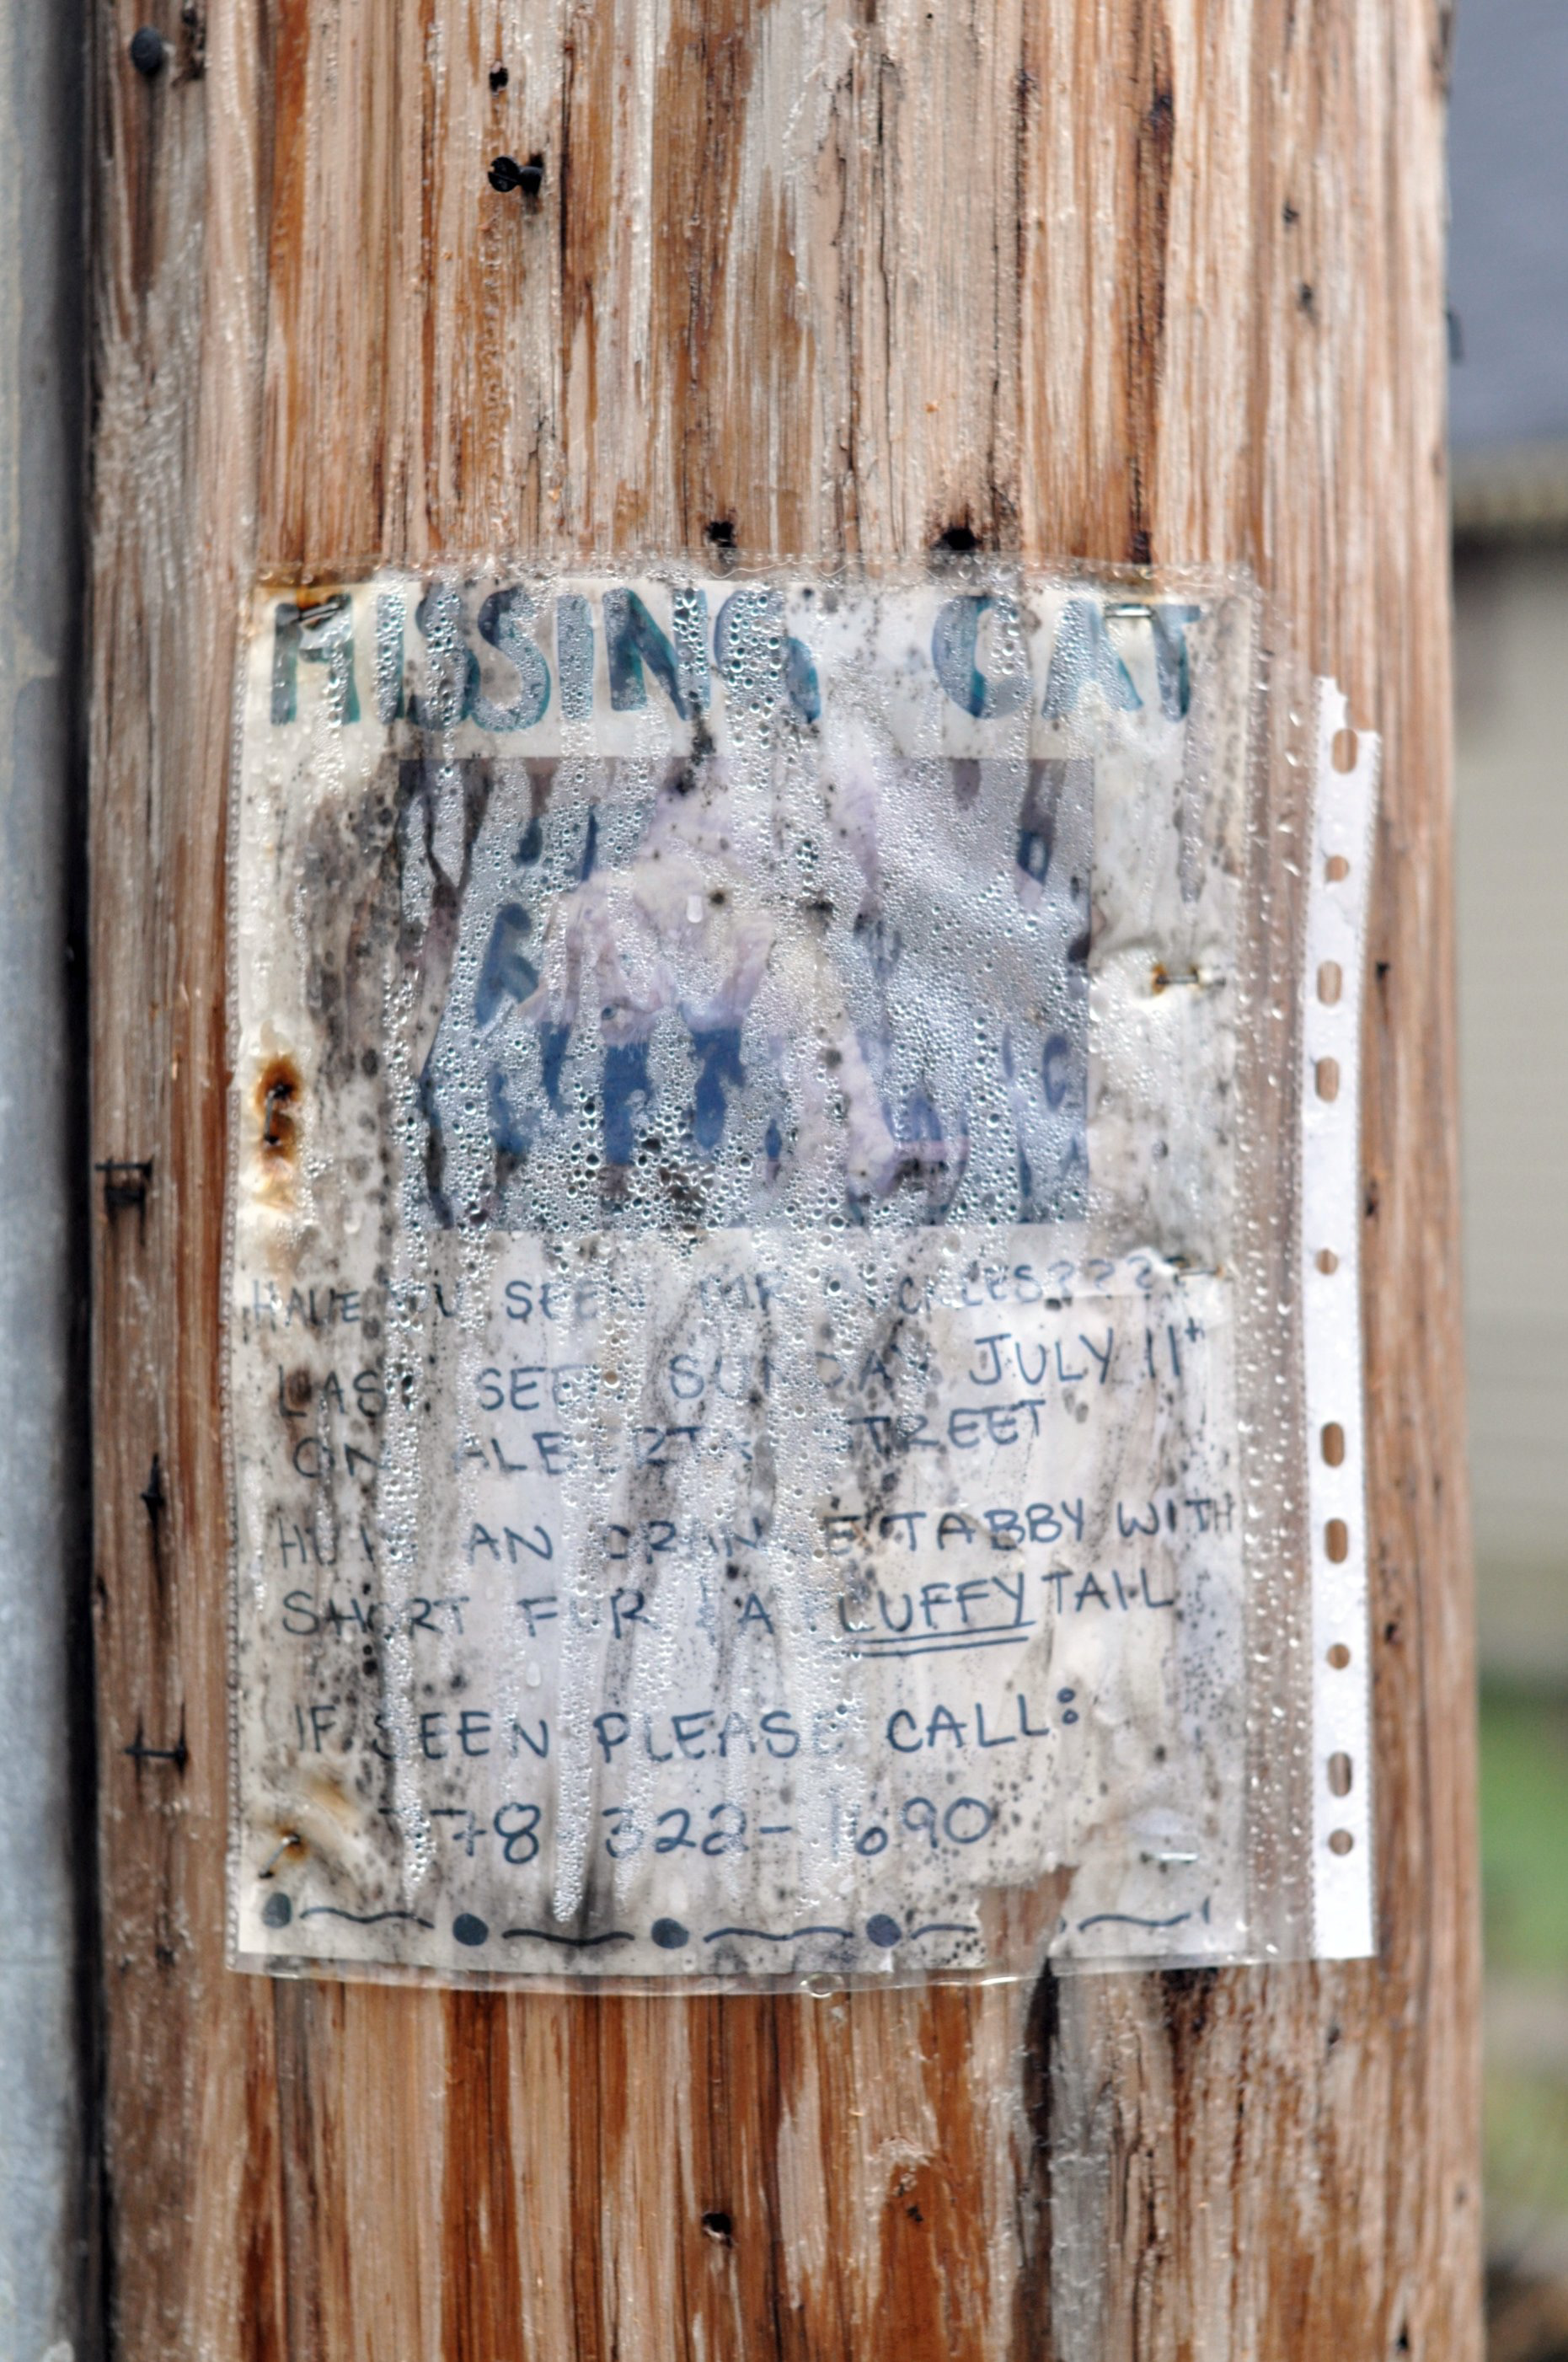 MISSING CAT
HAVE SEEN
LAST SEEN SUNDAY JULY 11th
ON STREET
AN ORANGE TABBY WITH
SHORT FUR A FLUFFY TAIL
IF SEEN PLEASE CALL:
322-1690